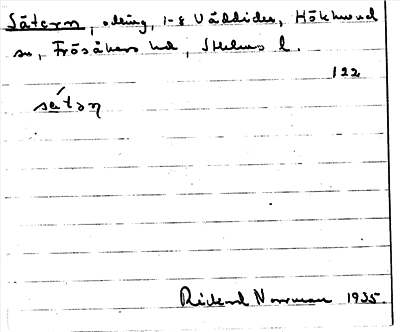 Sätern, odling, 1-8 Väddide, Hökhuvud
sn, Frösåkers hd, Sthlms l.
122
sǽtəɳ
Rickard Norrman 1935.